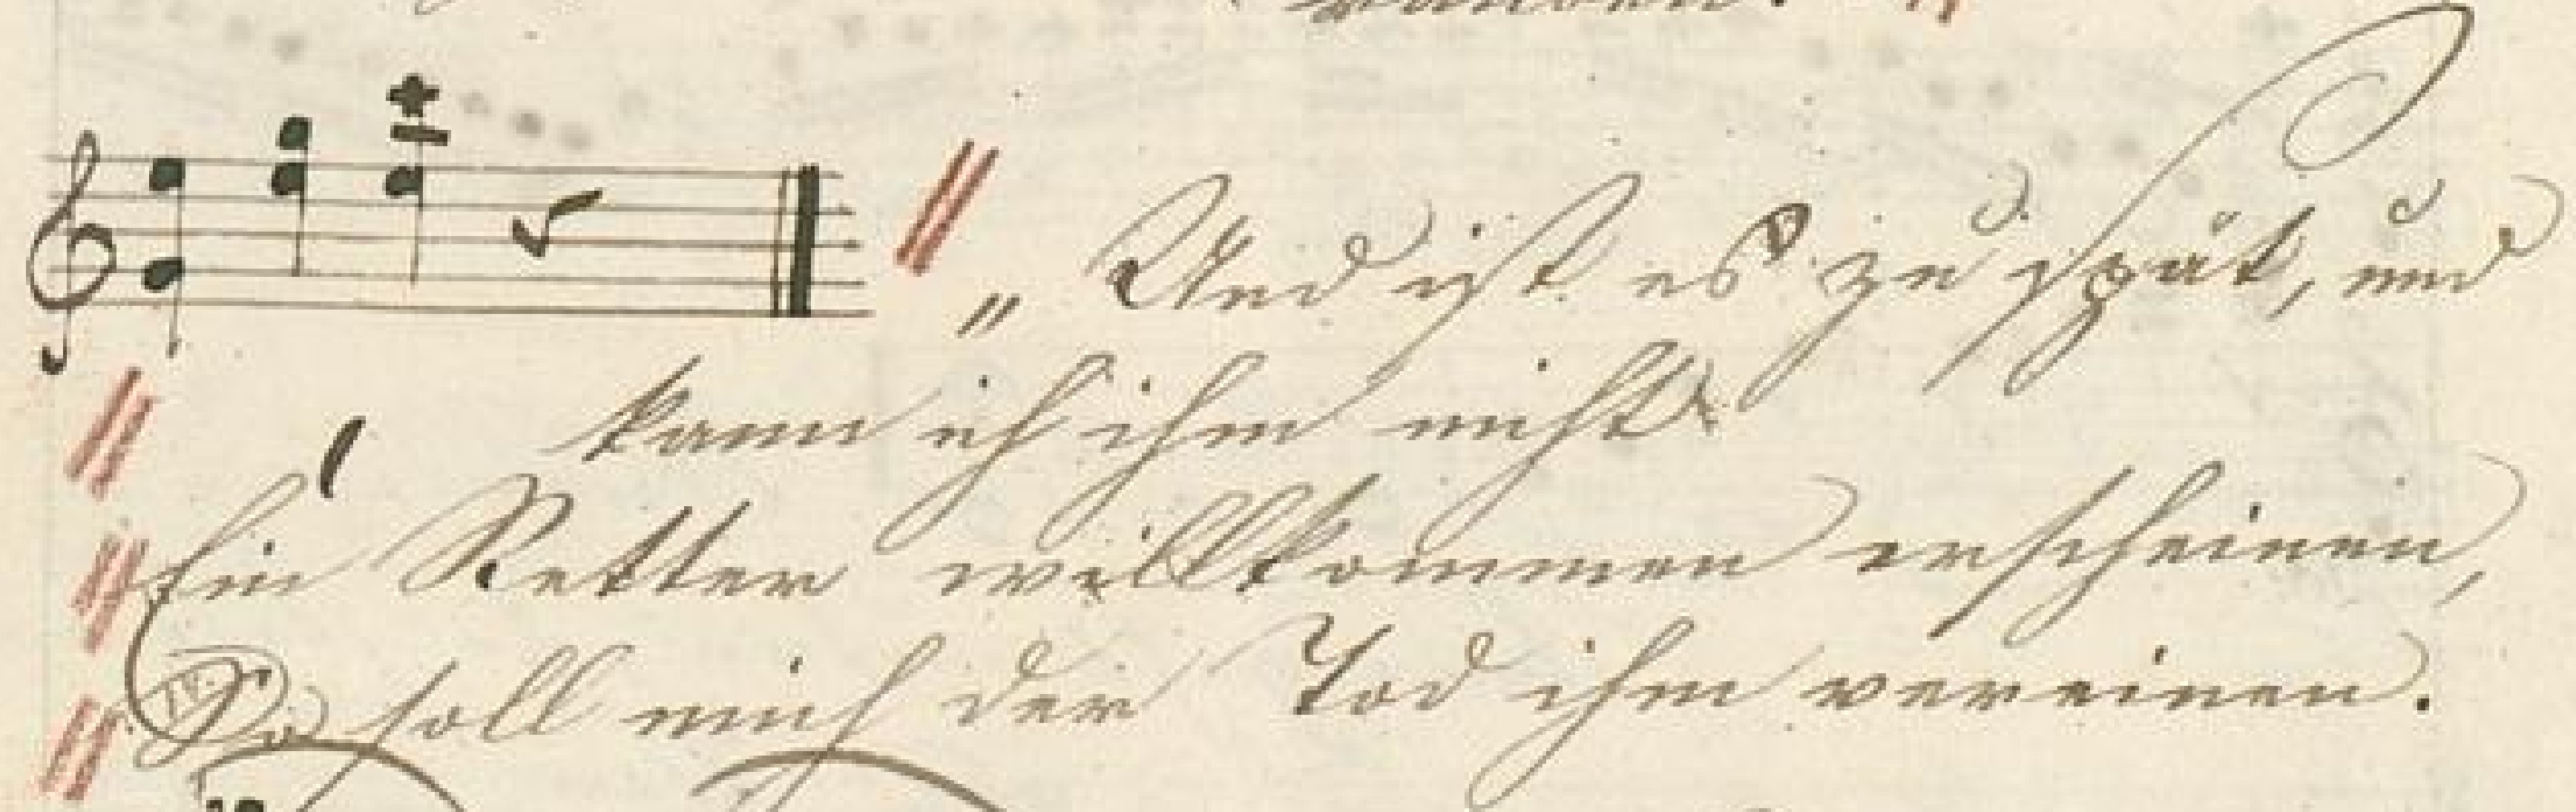 „Und ist es zu spät, und
kann ich ihm nicht
Ein Retter willkommen erscheinen,
So soll mich der Tod ihm vereinen.